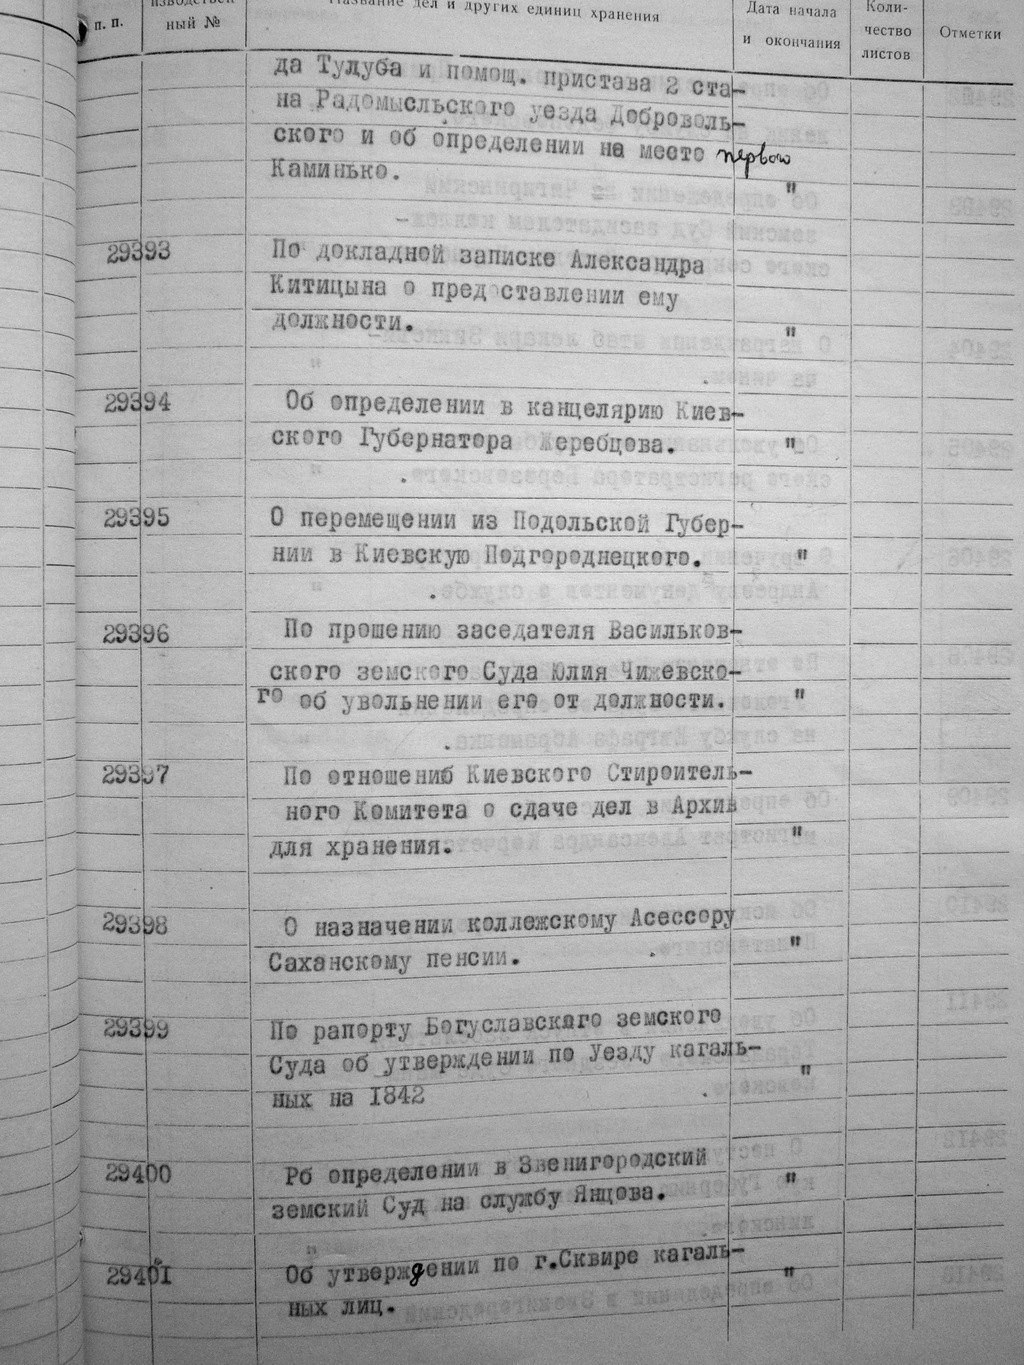 п. п.
ный №
Название дел и других единиц хранения
Дата начала
и окончания
Коли-
чество
листов
Отметки
да Тулуба и помощ. пристава 2 ста-
на Радомысльского уезда Доброволь-
ского и об определении на место первого
Каминько. "
29393 По докладной записке Александра
Китицына о предоставлении ему
должности. "
29394 Об определении в канцелярию Киев-
ского Губернатора Жеребцова. "
29395 О перемещении из Подольской Губер-
нии в Киевскую Подгороднецкого. "
29396 По прошению заседателя Васильков-
ского земского Суда Юлия Чижевско-
го об увольнении его от должности. "
29397 По отношениб Киевского Стироитель-
ного Комитета о сдаче дел в Архив
для хранения. "
29398 О назначении коллежскому Асессору
Саханскому пенсии. "
29399 По рапорту Богуславского земского
Суда об утверждении по Уезду кагаль-
ных на 1842 "
29400 Рб определении в Звенигородский
земский Суд на службу Янцова. "
29401 Об утверждении по г.Сквире кагаль-
ных лиц. "